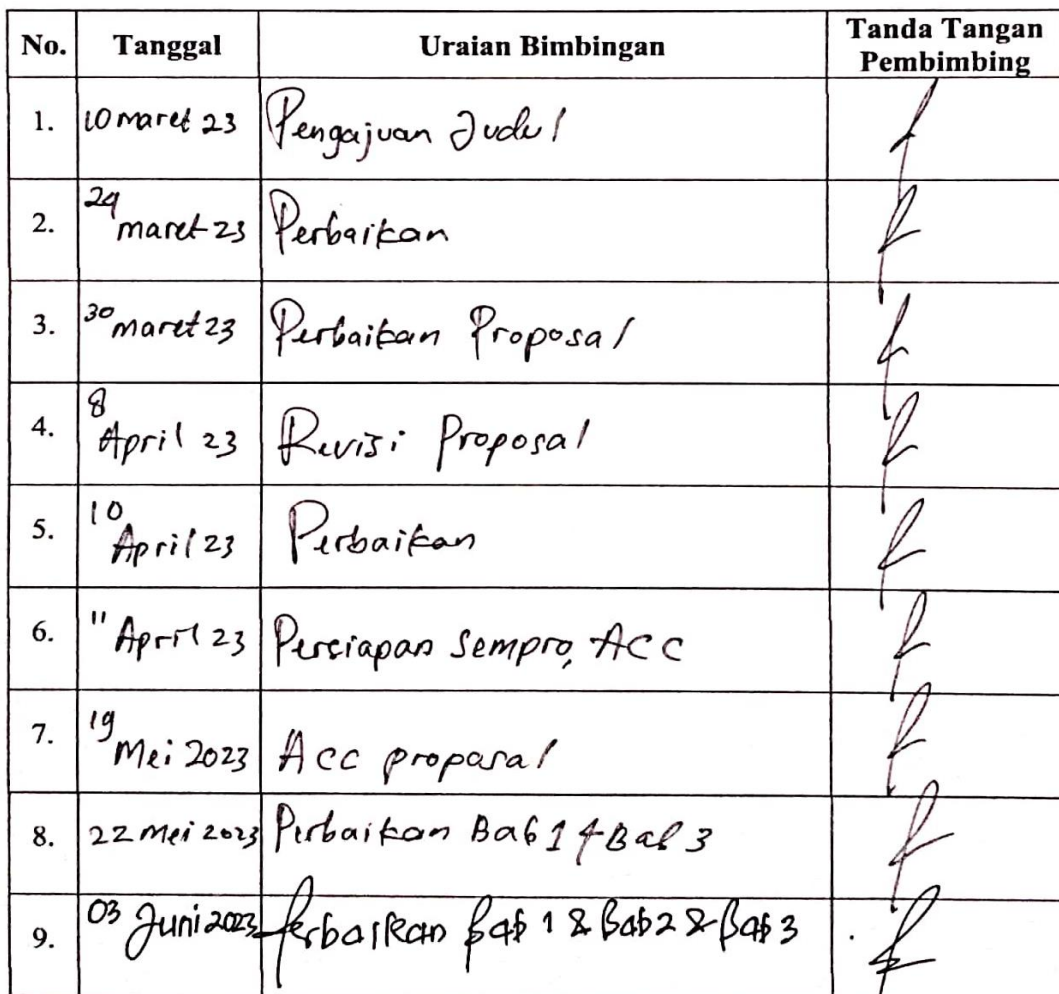 No. Tanggal Uraian Bimbingan Tanda Tangan Pembimbing
1. 10 maret 23 Pengajuan Judul
2. 24 maret 23 Perbaikan
3. 30 maret 23 Perbaikan Proposal
4. 8 April 23 Revisi Proposal
5. 10 April 23 Perbaikan
6. 11 April 23 Persiapan Sempro, ACC
7. 19 Mei 2023 Acc proposal
8. 22 Mei 2023 Perbaikan Bab 1 & Bab 3
9. 03 Juni 2023 Perbaikan Bab 1 & Bab 2 & Bab 3